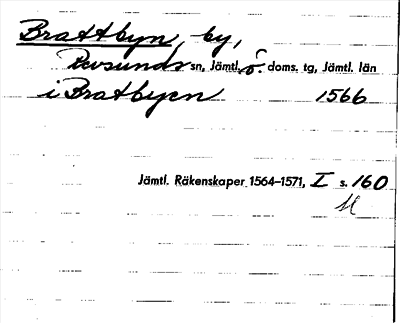 Brattbyn, by,
Revsunds sn, Jämtl. ö. doms. tg, Jämtl. län
i Bratbyen 1566
Jämtl. Räkenskaper 1564-1571, I s. 160